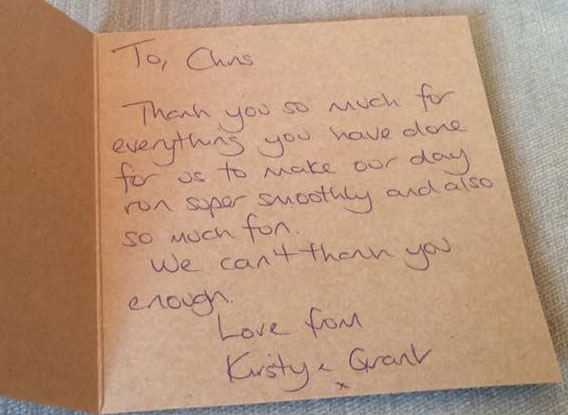 To, Chris
Thank you so much for
everything you have done
for us to make our day
run super smoothly and also
so much fun.
We can't thank you
enough.
Love from
Kirsty & Grant
x